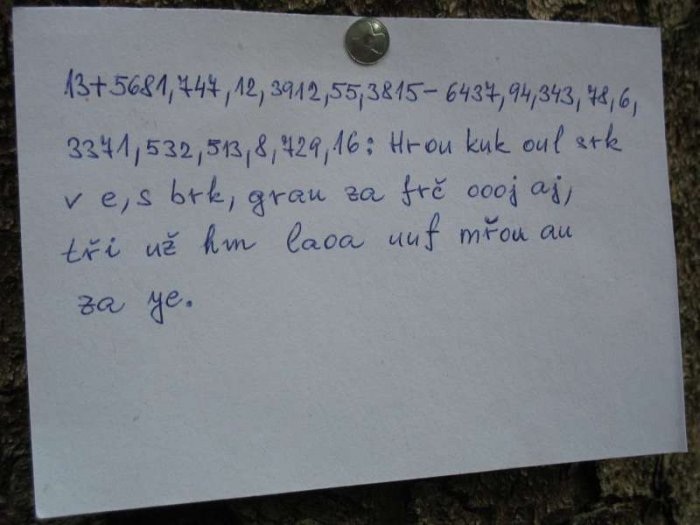 13+5681,747,12,3912,55,3815-6437,94,343,78,6,
3371,532,513,8,729,16: Hrou kuk oul srk
v e, s brk, grau za frč oooj aj,
tři už hm laoa uuf mřou au
za ye.